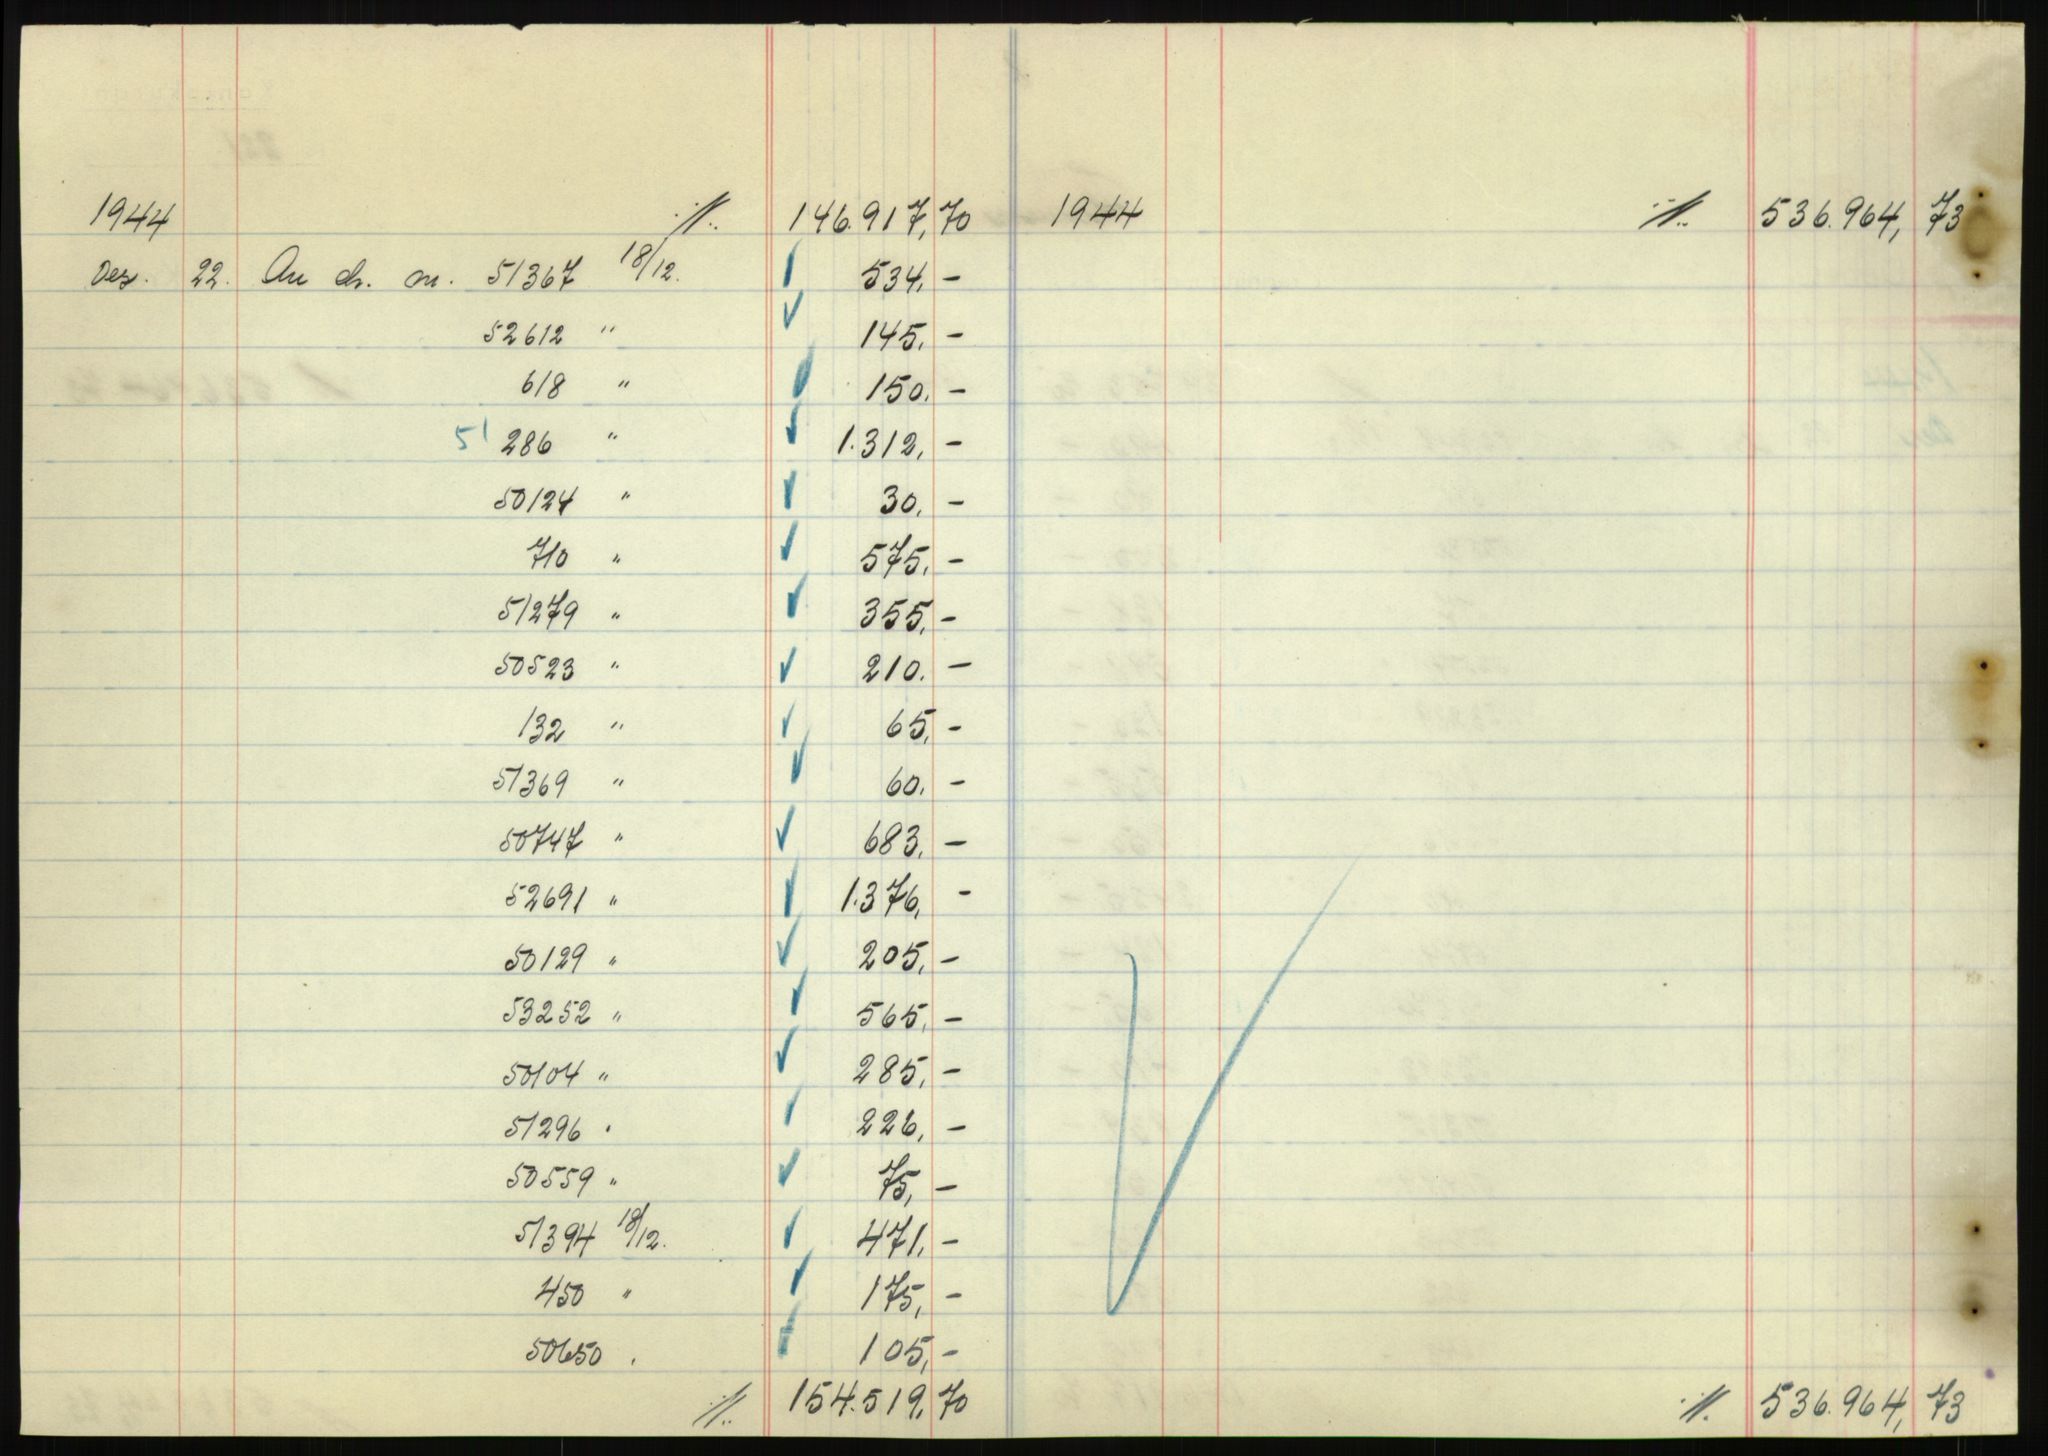 1944 ·/. 146.917,70
Des. 22. An ch. m. 51367 18/12. 534,-
52612 " 145,-
618 " 150,-
51 286 " 1.312,-
50124 " 30,-
710 " 575,-
51279 " 355,-
50523 " 210.-
132 " 65,-
51369 " 60,-
50747 " 683,-
52691 " 1.376,-
50129 " 205,-
53252 " 565,-
50104 " 285,-
51296 " 226,-
50559 " 75,-
51394 18/12. 471,-
450 " 175,-
50650 " 105,-
·/. 154.519,70
1944 ·/. 536.964,73
·/. 536.964,73